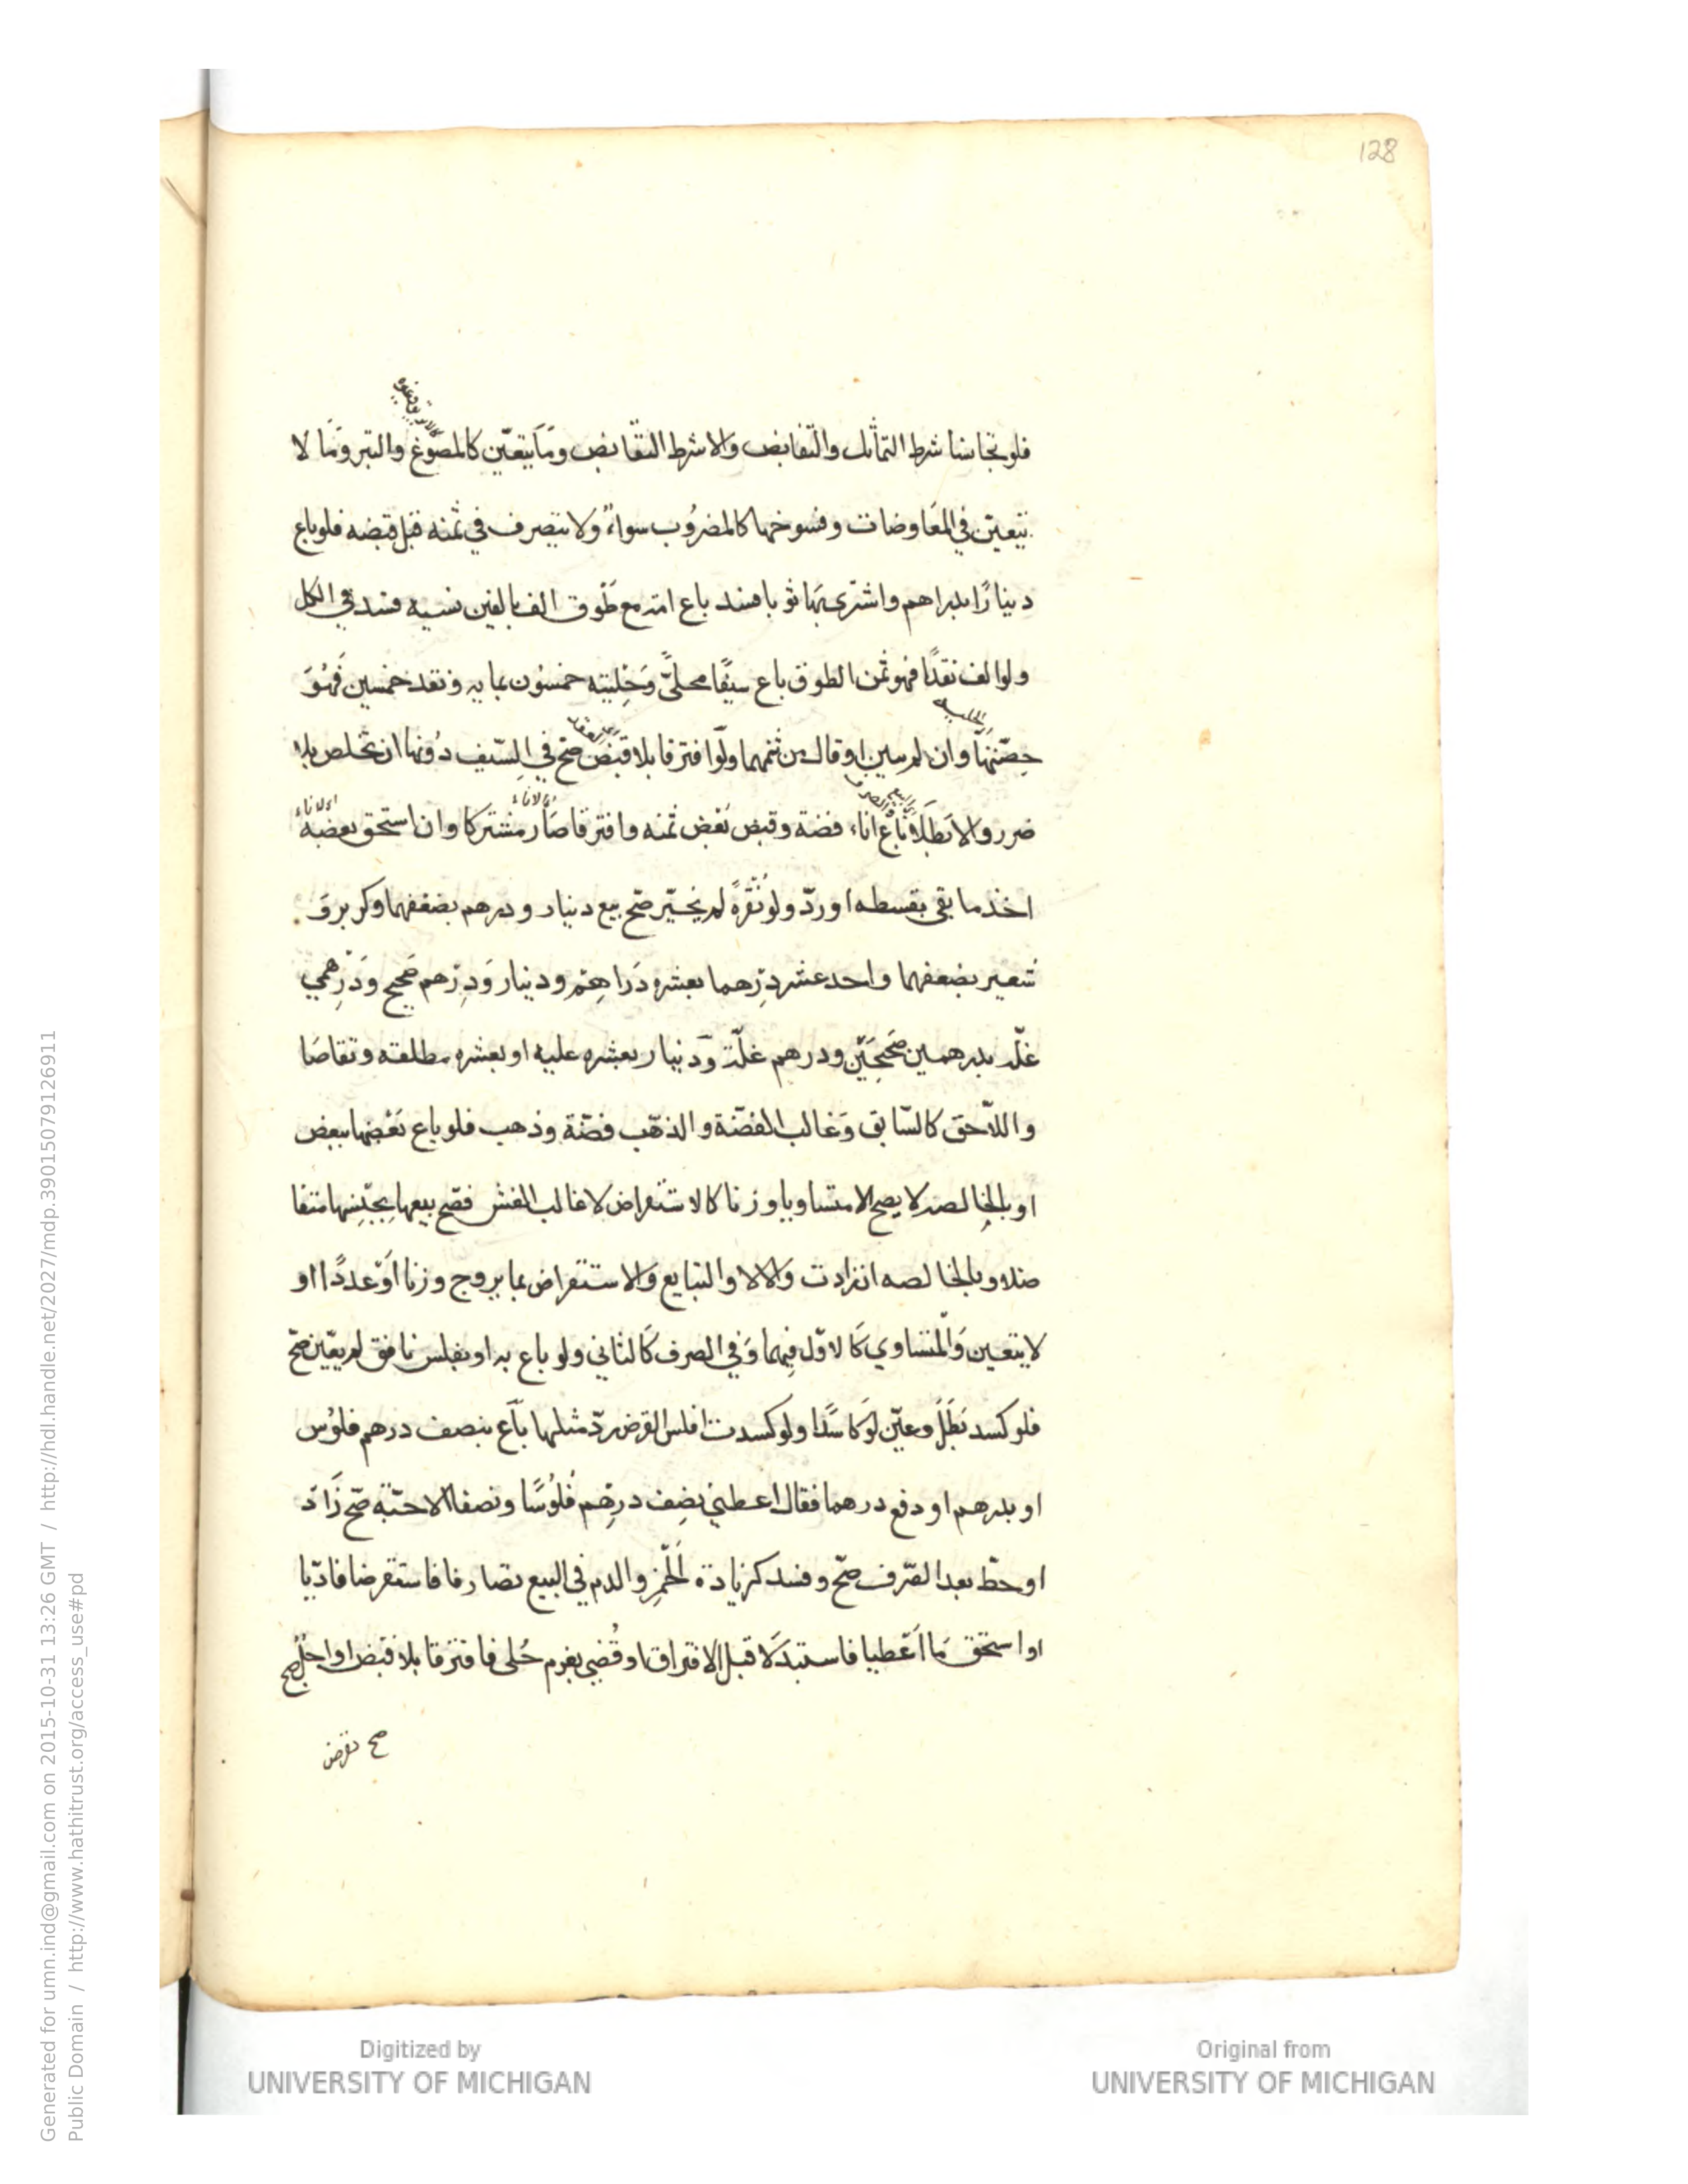 128
فلو تجانسا شرط التماثل والتقابض والا شرط التقابض وما يتعين كالمصوغ والتبر وما لا
يتعين في المعاوضات وفسوخها كالمضروب سواء ولا يتصرف في ثمنه قبل قبضه فلو باع
دينارًا بدراهم واشترى بها ثوبا فسد باع امة مع طوق الف بالفين نسية فسد في الكل
ولو الف نقدًا فهو ثمن الطوق باع سيفًا محلىً وحليته خمسون بمايه ونقد خمسين فهو
الحلية
حصتها وان لم يبين او قال من ثمنهما ولو افترقا بلا قبض صح في السيف دونها ان تخلص بلا
ضرر والا بطلا باع اناء فضة وقبض بعض ثمنه وافترقا صار مشتركا وان استحق بعضه
اي الاناء
اي الاناء
اخذ ما بقي بقسطه او ردّ ولو نقرةً لم يخيّر صحّ بيع دينار ودرهم بضعفهما وكر بر و
شعير بضعفهما واحد عشر درهما بعشرة دراهم ودينار ودرهم صحيح ودرهمي
غلّة بدرهمين صحيحين ودرهم غلّة ودينار بعشرة عليه او بعشرة مطلقة وتقاصا
واللاحق كالسّابق وغالب الفضّة والذهب فضّة وذهب فلو باع بعضها ببعض
او بالخالصة لا يصح الا متساويا وزنا كالاستقراض لا غالب الغش فصّح بيعها بجنسها متفا
ضلا وبالخالصه ان زادت والا لا والتبايع والاستقراض بما يروج وزنا او عددًا او
لا يتعين والمتساوي كالاول فيهما وفي الصرف كالثاني ولو باع به او بفلس نافق لم يعيّن صحّ
فلو كسد بطل وعيّن لو كاسدًا ولو كسدت افلس القرض ردّ مثلها باع بنصف درهم فلوس
او بدرهم او دفع درهما فقال اعطني نصف درهم فلوسًا ونصفا الا حبّة صّح زاد
او حطّ بعد الصّرف صّح وفسد كزيادة الخمر والدم في البيع تصارفا فاستقرضا فادّيا
او استحق ما اعطيا فاستبدلا قبل الافتراق او قضي بغرم حلى فافترقا بلا قبض او اجّل صح
صح بقرض
Generated for umn.ind@gmail.com on 2015-10-31 13:26 GMT / http://hdl.handle.net/2027/mdp.39015079126911
Public Domain / http://www.hathitrust.org/access_use#pd
Digitized by
UNIVERSITY OF MICHIGAN
Original from
UNIVERSITY OF MICHIGAN